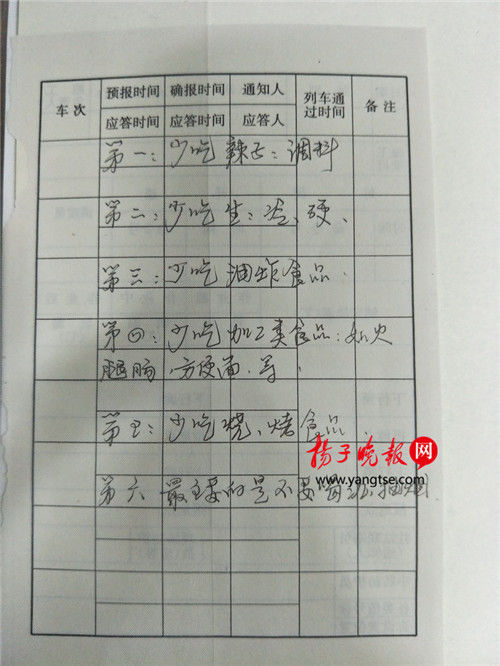 车次 预报时间 确报时间 通知人 列车通过时间 备注
应答时间 应答时间 应答人
第一：少吃辣子：调料
第二：少吃生：冷、硬、
第三：少吃油炸食品
第四：少吃加工类食品：如火
腿肠 方便面.等.
第五：少吃烧、烤食品.
扬子晚报网
www.yangtse.com
第六 最主要的是不要喝酒、抽烟